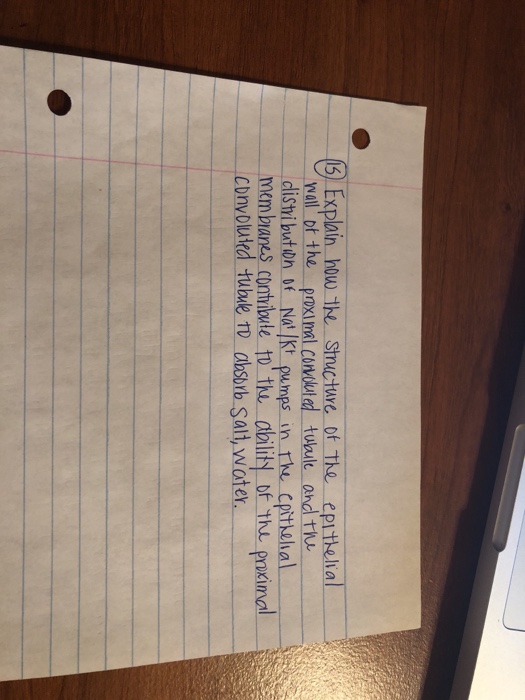 15 Explain how the structure of the epithelial
wall of the proximal convoluted tubule and the
distribution of Na+/K+ pumps in the epithelial
membranes contribute to the ability of the proximal
convoluted tubule to absorb salt, water.